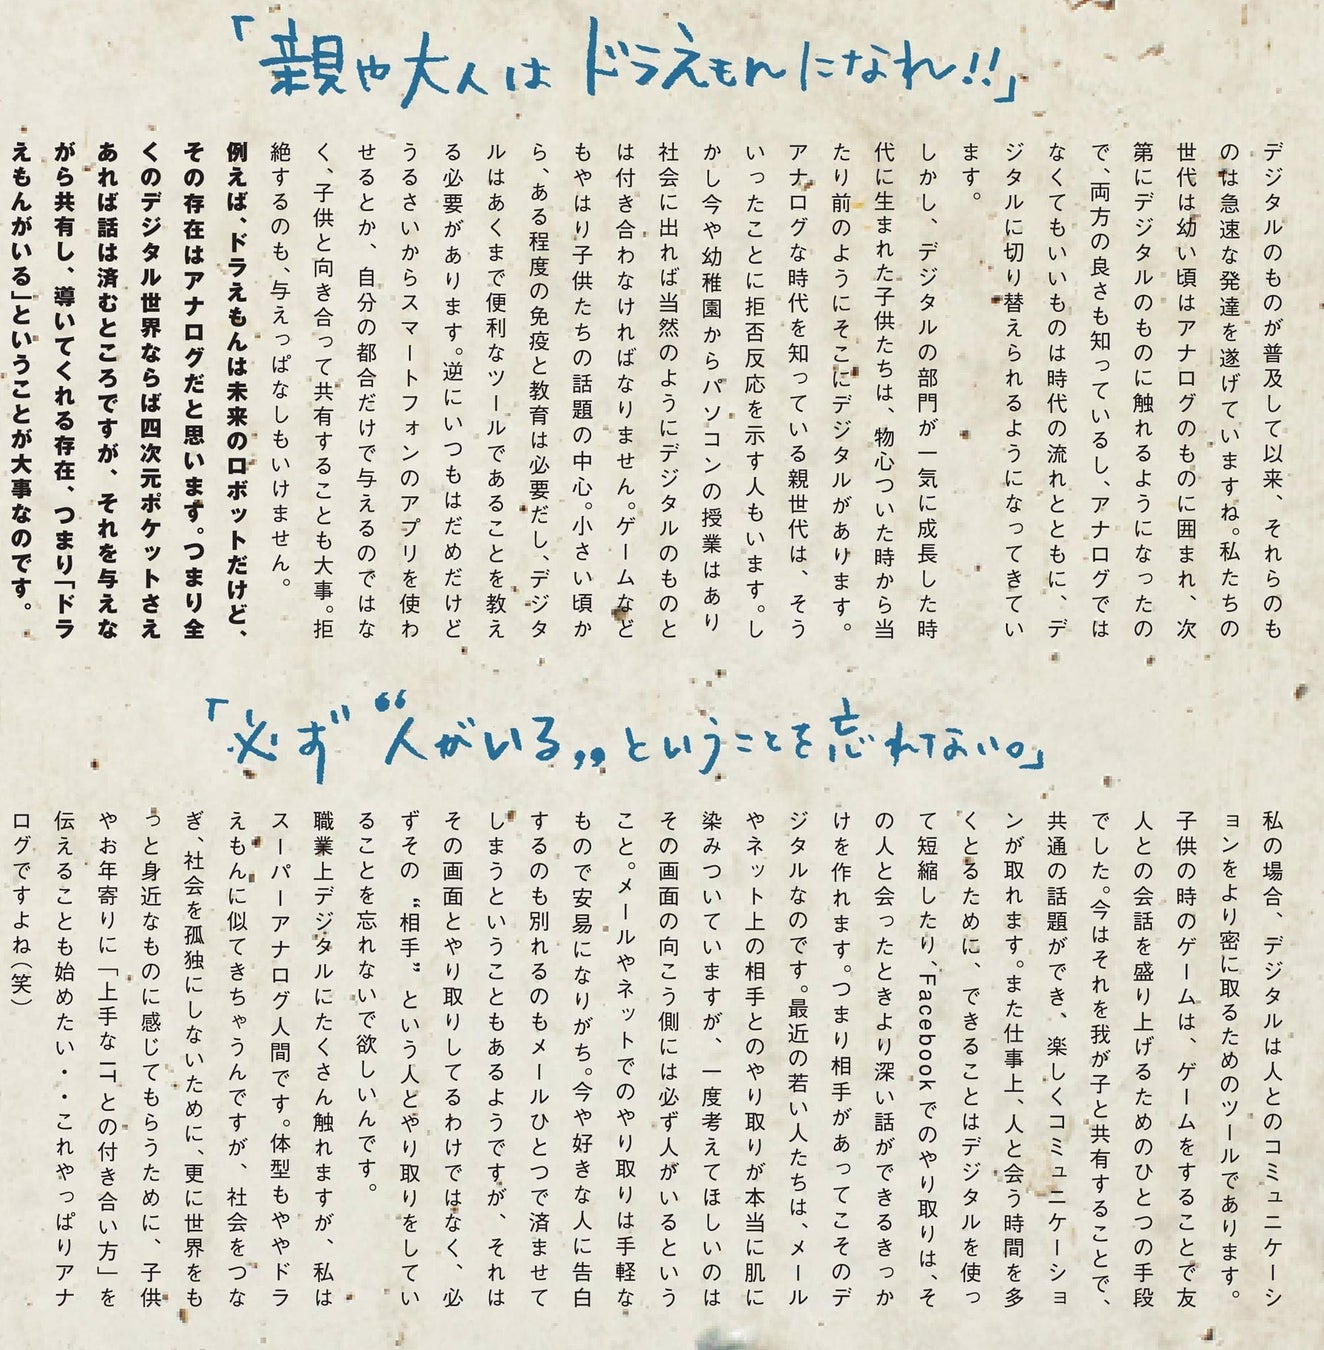 「親や大人は ドラえもんになれ!!」
デジタルのものが普及して以来、それらのも
のは急速な発達を遂げていますね。私たちの
世代は幼い頃はアナログのものに囲まれ、次
第にデジタルのものに触れるようになったの
で、両方の良さも知っているし、アナログでは
なくてもいいものは時代の流れとともに、デ
ジタルに切り替えられるようになってきてい
ます。
しかし、デジタルの部門が一気に成長した時
代に生まれた子供たちは、物心ついた時から当
たり前のようにそこにデジタルがあります。
アナログな時代を知っている親世代は、そう
いったことに拒否反応を示す人もいます。し
かし今や幼稚園からパソコンの授業はあり
社会に出れば当然のようにデジタルのものと
は付き合わなければなりません。ゲームなど
もやはり子供たちの話題の中心。小さい頃か
ら、ある程度の免疫と教育は必要だし、デジタ
ルはあくまで便利なツールであることを教え
る必要があります。逆にいつもはだめだけど
うるさいからスマートフォンのアプリを使わ
せるとか、自分の都合だけで与えるのではな
く、子供と向き合って共有することも大事。拒
絶するのも、与えっぱなしもいけません。
例えば、ドラえもんは未来のロボットだけど、
その存在はアナログだと思います。つまり全
くのデジタル世界ならば四次元ポケットさえ
あれば話は済むところですが、それを与えな
がら共有し、導いてくれる存在、つまり「ドラ
えもんがいる」ということが大事なのです。
「必ず“人がいる„ということを忘れない。」
私の場合、デジタルは人とのコミュニケーシ
ョンをより密に取るためのツールであります。
子供の時のゲームは、ゲームをすることで友
人との会話を盛り上げるためのひとつの手段
でした。今はそれを我が子と共有することで、
共通の話題ができ、楽しくコミュニケーショ
ンが取れます。また仕事上、人と会う時間を多
くとるために、できることはデジタルを使っ
て短縮したり、Facebookでのやり取りは、そ
の人と会ったときより深い話ができるきっか
けを作れます。つまり相手があってこそのデ
ジタルなのです。最近の若い人たちは、メール
やネット上の相手とのやり取りが本当に肌に
染みついていますが、一度考えてほしいのは
その画面の向こう側には必ず人がいるという
こと。メールやネットでのやり取りは手軽な
もので安易になりがち。今や好きな人に告白
するのも別れるのもメールひとつで済ませて
しまうということもあるようですが、それは
その画面とやり取りしてるわけではなく、必
ずその“相手”という人とやり取りをしてい
ることを忘れないで欲しいんです。
職業上デジタルにたくさん触れますが、私は
スーパーアナログ人間です。体型もややドラ
えもんに似てきちゃうんですが、社会をつな
ぎ、社会を孤独にしないために、更に世界をも
っと身近なものに感じてもらうために、子供
やお年寄りに「上手なITとの付き合い方」を
伝えることも始めたい・・これやっぱりアナ
ログですよね（笑）